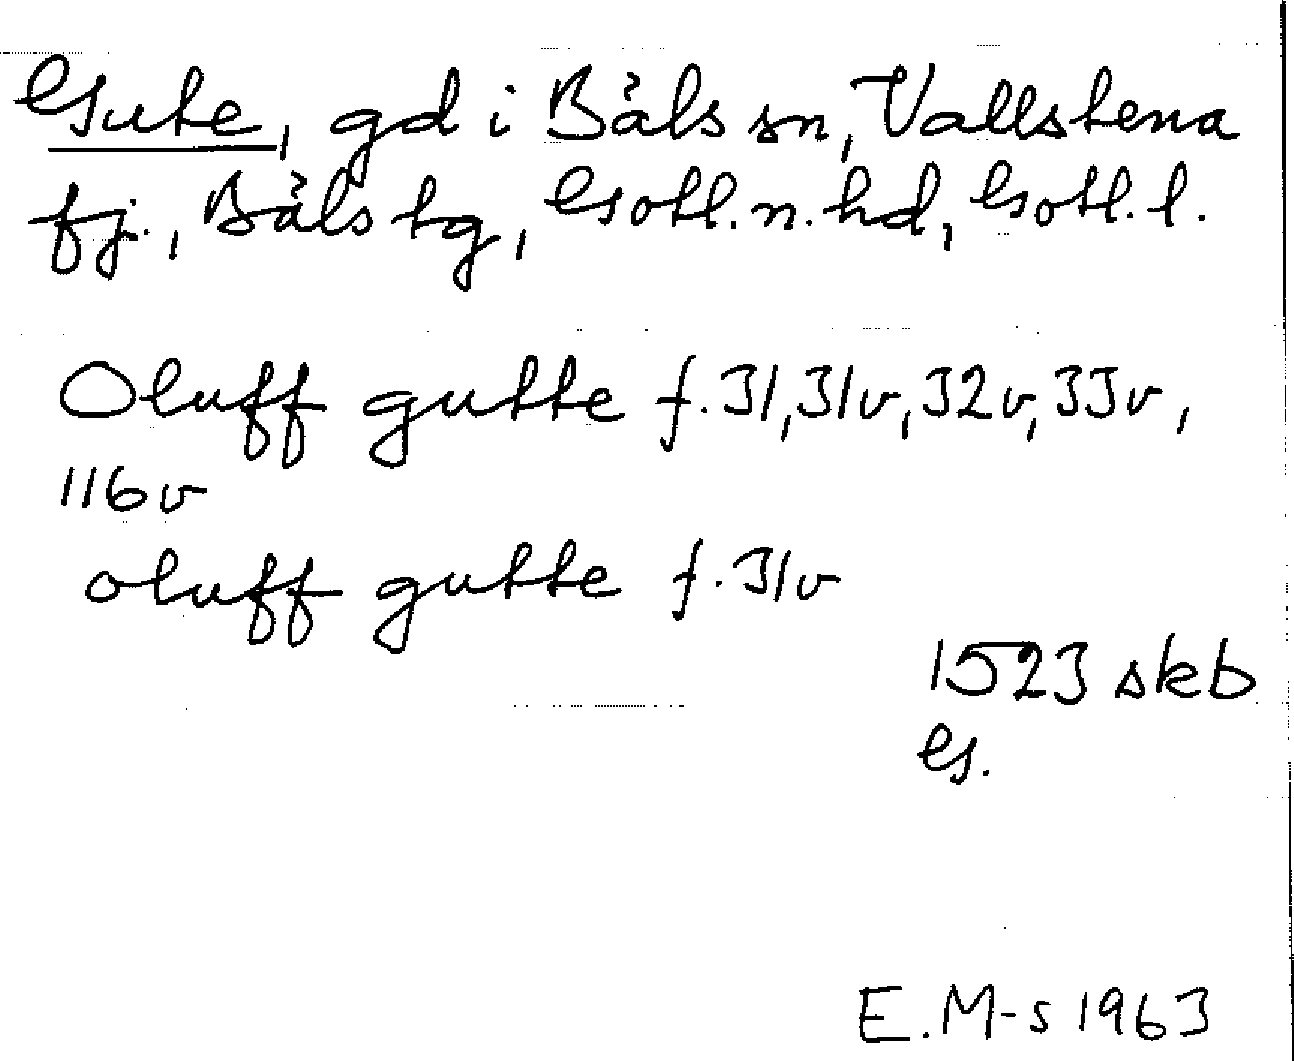 Gute, gd i Båls sn, Vallstena
fj., Båls tg, Gotl. n. hd, Gotl. l.
Oluff gutte f. 31, 31v, 32v, 33v,
116v
oluff gutte f. 31v
1523 skb
G.
E. M-s 1963